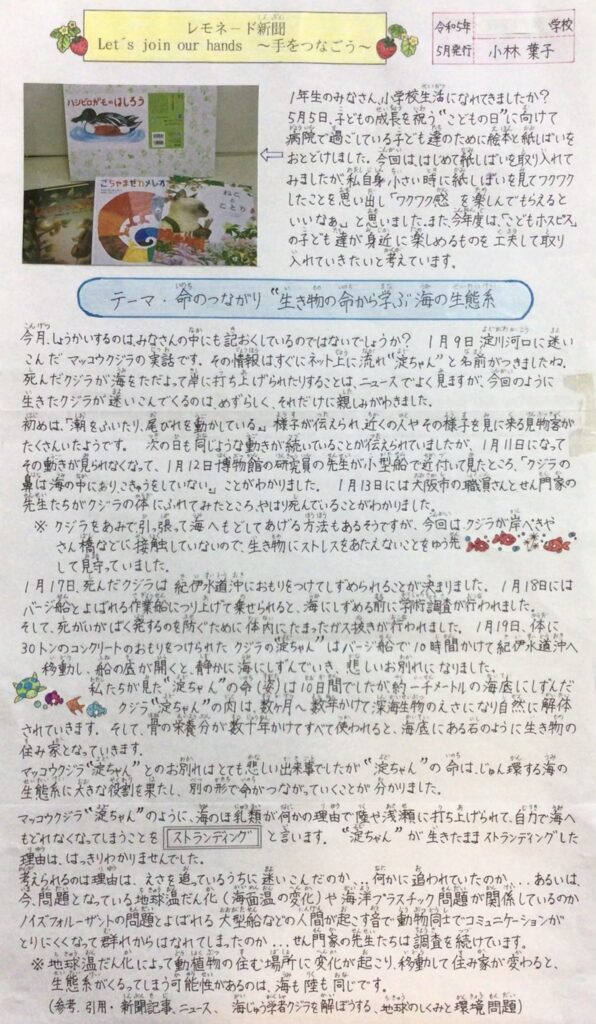 レモネード新聞
Let´s join our hands ～手をつなごう～
令和5年
学校
5月発行
小林 葉子
ハシビロがものはしろう
ごちゃまぜカメレオ
ねこ
と
ことり
1年生のみなさん、小学校生活になれてきましたか？
5月5日、子どもの成長を祝う“こどもの日”に向けて
病院で過ごしている子ども達のために絵本と紙しばいを
おとどけしました。今回は、はじめて紙しばいを取り入れて
みましたが、私自身、小さい時に紙しばいを見てワクワク
したことを思い出し「ワクワク感を楽しんでもらえると
いいなぁ」と思いました。また、今年度は、「こどもホスピス」
の子ども達が身近に楽しめるものを工夫して取り
入れていきたいと考えています。
テーマ・命のつながり “生き物の命から学ぶ”海の生態系
今月、しょうかいするのは、みなさんの中にも記おくしているのではないでしょうか？ 1月9日淀川河口に迷い
こんだ マッコウクジラの実話です。その情報はすぐにネット上に流れ“淀ちゃん”と名前がつきましたね。
死んだクジラが海をただよって岸に打ち上げられたりすることは、ニュースでよく見ますが、今回のように
生きたクジラが迷いこんでくるのは、めずらしく、それだけに親しみがわきました。
初めは、「潮をふいたり、尾びれを動かしている。」様子が伝えられ、近くの人やその様子を見に来る見物客が
たくさんいたようです。 次の日も同じような動きが続いていることが伝えられていましたが、1月11日になって
その動きが見られなくなって、1月12日博物館の研究員の先生が小型船で近付いて見たところ、「クジラの
鼻は海の中にあり、こきゅうをしていない。」ことがわかりました。 1月13日には大阪市の職員さんとせん門家の
先生たちがクジラの体にふれてみたところ、やはり死んでいることがわかりました。
※クジラをあみで引っ張って海へもどしてあげる方法もあるそうですが、今回はクジラが岸ぺきや
さん橋などに接触していないので、生き物にストレスをあたえないことをゆう先
して見守っていました。
1月17日、死んだクジラは紀伊水道沖におもりをつけてしずめられることが決まりました。 1月18日には
バージ船とよばれる作業船につり上げて乗せられると、海にしずめる前に学術調査が行われました。
そして、死がいがばく発するのを防ぐために体内にたまったガス抜きが行われました。 1月19日、体に
30トンのコンクリートのおもりをつけられた クジラの“淀ちゃん”はバージ船で10時間かけて紀伊水道沖へ
移動し、船の底が開くと、静かに海にしずんでいき、悲しいお別れになりました。
私たちが見た“淀ちゃんの命(姿)は10日間でしたが約一千メートルの海底にしずんだ
クジラ“淀ちゃん”の肉は、数ヶ月へ数年かけて深海生物のえさになり自然に解体
されていきます。そして、骨の栄養分が数十年かけてすべて使われると、海底にある石のように生き物の
住み家となっていきます。
マッコウクジラ“淀ちゃん”とのお別れはとても悲しい出来事でしたが“淀ちゃん”の命は、じゅん環する海の
生態系に大きな役割を果たし、別の形で命がつながっていくことが分かりました。
マッコウクジラ“淀ちゃん”のように、海のほ乳類が何かの理由で陸や浅瀬に打ち上げられて、自力で海へ
もどれなくなってしまうことを ストランディング と言います。“淀ちゃん”が生きたままストランディングした
理由は、はっきりわかりませんでした。
考えられるのは理由は、えさを追っているうちに迷いこんだのか...何かに追われていたのか...あるいは、
今、問題となっている地球温だん化(海面温の変化)や海洋プラスチック問題が関係しているのか
ノイズフォルーザントの問題とよばれる大型船などの人間が起こす音で動物同士でコミュニケーションが
とりにくくなって群れからはなれてしまったのか...せん門家の先生たちは調査を続けています。
※地球温だん化によって動植物の住む場所に変化が起こり、移動して住み家が変わると、
生態系がくるってしまう可能性があるのは、海も陸も同じです。
(参考.引用・新聞記事、ニュース、海じゅう学者クジラを解ぼうする、地球のしくみと環境問題)